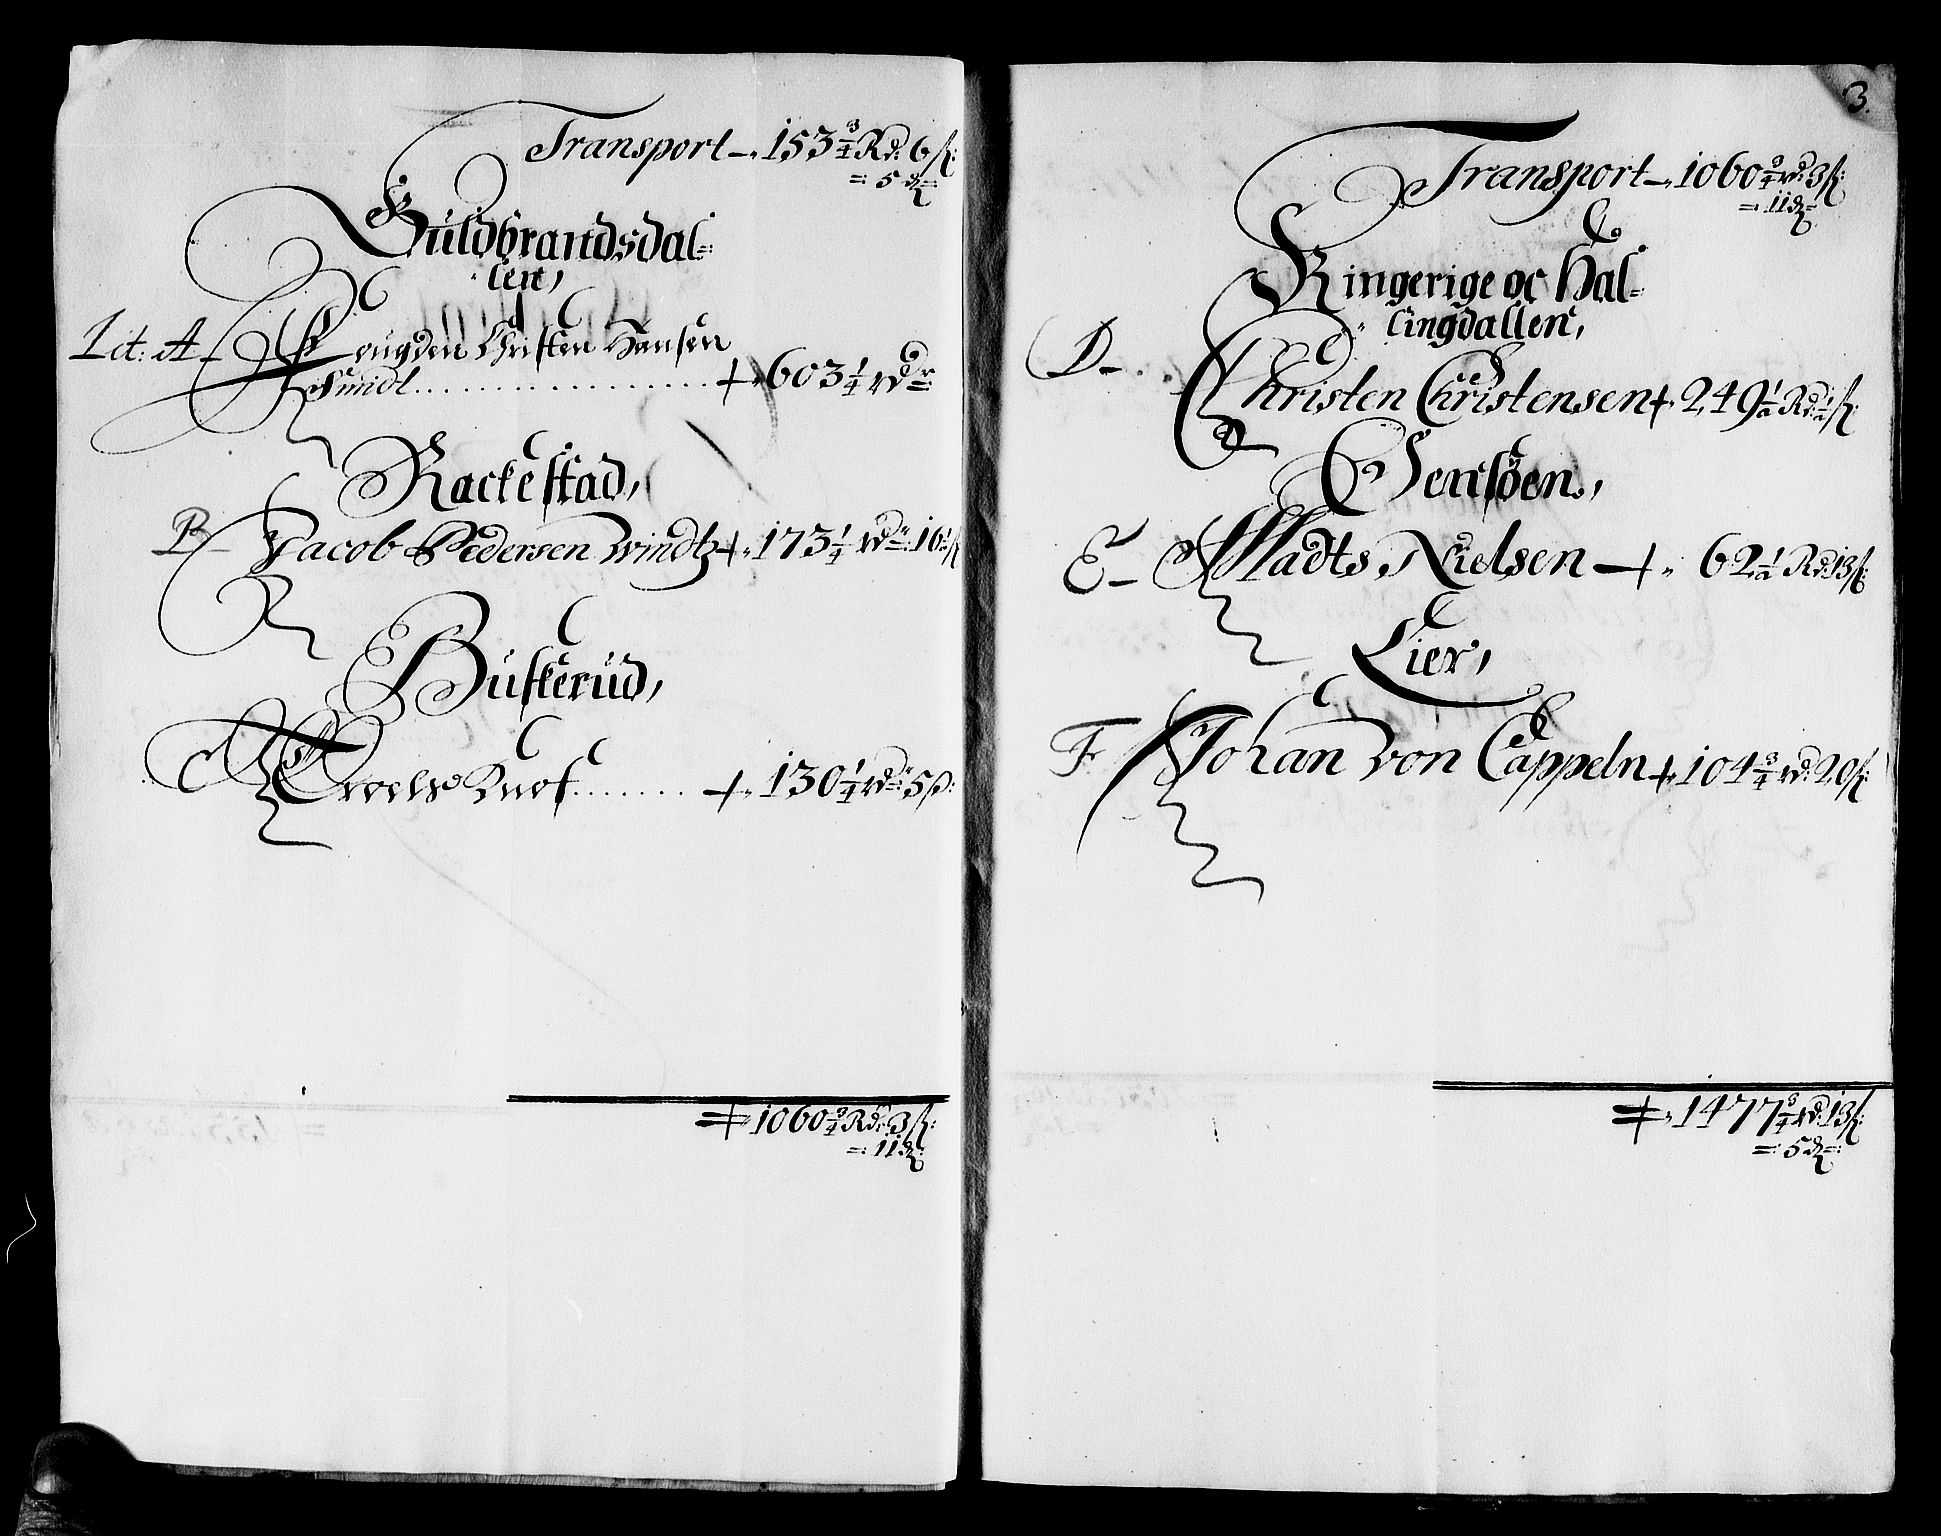 Transport — 153¾ Rd: 6 ß:
=: 5 ₰ =:
Guldbrandsdal=:
len,
Lit: A — Fougden Christen Hansen
Smidt .................... + 603¼ rdr
Rackestad,
B — Jacob Pedersen Windtz + 173¼ rdr: 16½ ß
Buskerud,
C Troels Knof ....... + 130¼ rdr: 5 ß:
+ 1060¾ Rd: 3 ß:
=: 11 ₰:
3.
Transport — 1060¾ rd: 3 ß:
=: 11 ₰ =
Ringerige oc Hal=
lingdallen,
D — Christen Christensen + 249½ Rd: ½ ß:
Jensöen,
E — Madts Nielsen — + 62½ Rd: 13 ß:
Lier,
F Johan von Cappeln + 104¾ rd: 20 ß:
+ 1477¾ rd: 13 ß:
=: 5 ₰ =: